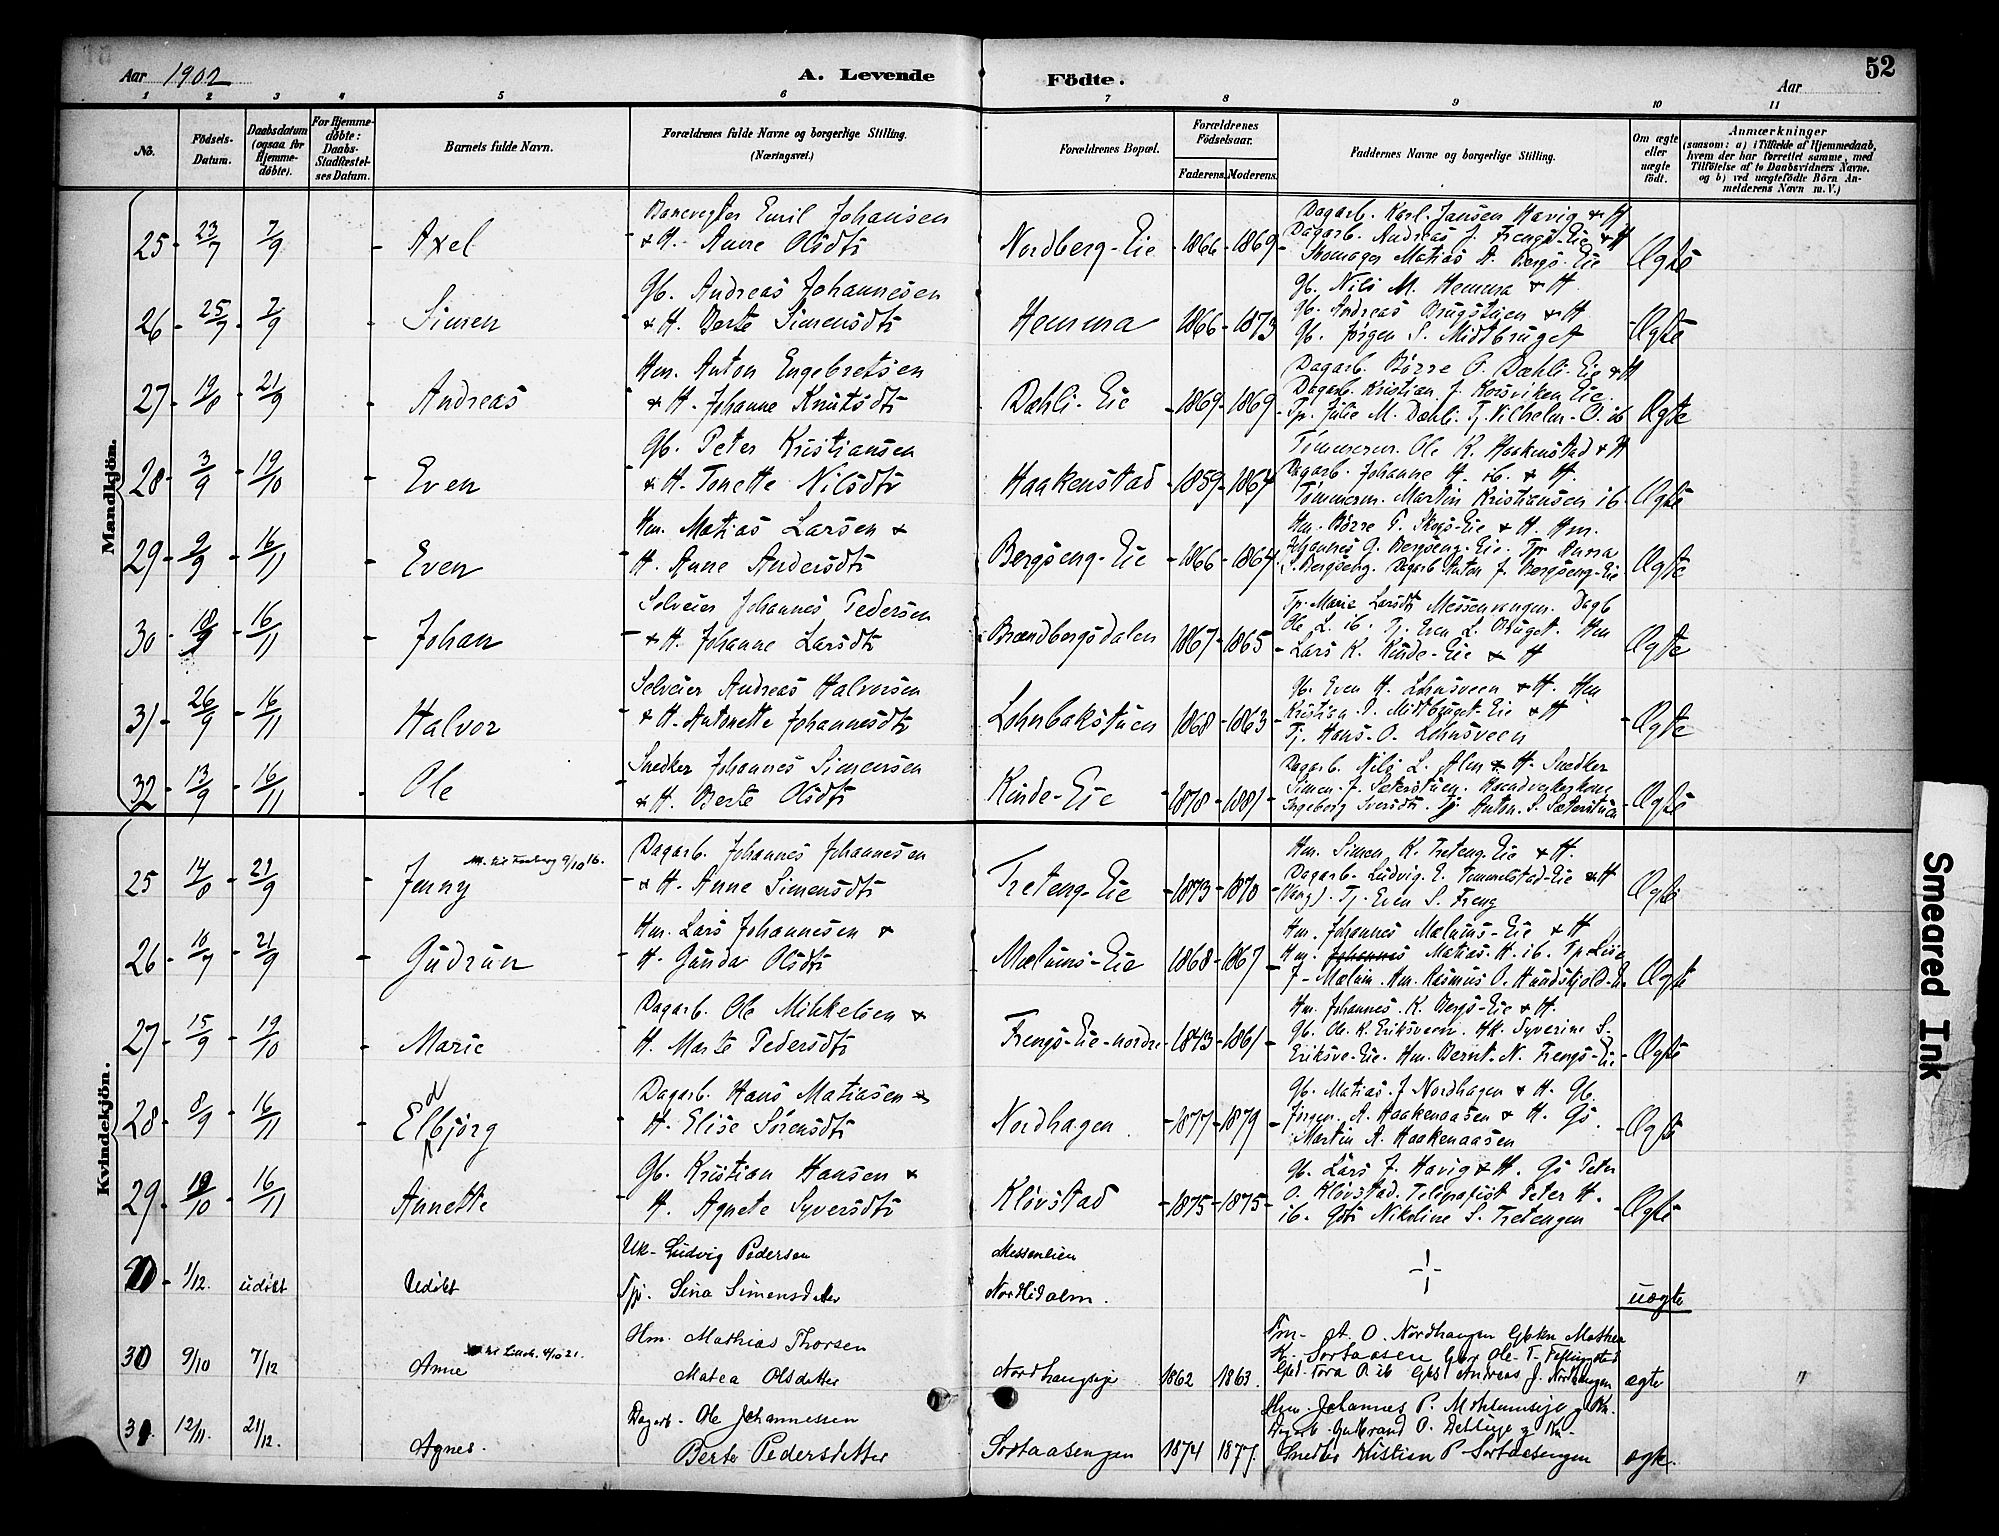 Aar 1902
A. Levende Födte.
Aar
52
1 2 3 4 5 6 7 8 9 10 11
No.
Födsels-Datum.
Daabsdatum (ogsaa for Hjemme-døbte).
For Hjemme-døbte: Daabs-Stadfæstel-ses Datum.
Barnets fulde Navn.
Forældrenes fulde Navne og borgerlige Stilling. (Næringsvei.)
Forældrenes Bopæl.
Forældrenes Födselsaar.
Faderens. Moderens.
Faddernes Navne og borgerlige Stilling.
Om ægte eller uægte födt.
Anmærkninger
(saasom: a) i Tilfælde af Hjemmedaab, hvem der har forrettet samme, med Tilföielse af to Daabsvidners Navne. og b) ved uægtefödte Börn An-melderens Navn m. V.)
Mandkjön.
25 - 23/7 7/9 - Axel
Banevogter Emil Johansen
& H. Anne Olsdtr
Nordberg-Eie - 1866 - 1869
Dagarb. Karl Jansen Havig & H
Dagarb. Andreas J. Frengs-Eie & H
Skomager Matias A. Bergs-Eie
Ægte
26 - 25/7 - 7/9 - Simen
Gb. Andreas Johannesen
& H. Berte Simensdtr
Hemma 1866 - 1873
Gb. Nils M. Hemma & H
Gb. Andreas Brugstuen & H
Gb. Jørgen S. Midtbruget
Ægte
27 - 19/8 - 21/9 - Andreas
Hm. Anton Engebretsen
& H. Johanne Knutsdtr
Dæhli-Eie - 1869 - 1869
Dagarb. Børre O. Dæhli-Eie & H
Dagarb. Kristian J. Korsviken Eie.
Tp. Julie M. Dæhli. Tj. Vilhelm O. ib
Ægte
28 - 3/9 - 19/10 - Even
Gb. Peter Kristiansen
& H. Tonette Nilsdtr
Haakenstad - 1859 - 1867
Tømmerm. Ole K. Haakenstad & H
Dagarb. Johanne H. ib. & H.
Tømmerm. Martin Kristiansen ib.
Ægte
29 - 9/9 - 16/11 - Even
Hm. Matias Larsen &
H. Anne Andersdtr
Bergseng-Eie - 1866 - 1867
Hm. Børre P. Skogs-Eie & H. Hm.
Johannes G. Bergseng-Eie. Tp. Anna
S. Bergseng. Dagarb Anton J. Bergseng-Eie
Ægte
30 - 18/9 - 16/11 - Johan
Selveier Johannes Pedersen
& H. Johanne Larsdtr
Brændbergsdalen 1867 - 1865
Tp. Marie Larsdtr Messenvangen. Dagb
Ole L. ib. Tj. Even L. Bruget. Hm
Lars K. Kinde-Eie & H
Ægte
31 - 26/9 - 16/11 - Halvor
Selveier Andreas Halvorsen
& H. Antonette Johannesdtr
Lohnbakstuen 1868 - 1863
Gb. Even H. Lohnsveen & H. Hm
Kristian O. Midtbruget-Eie & H
Tj. Hans O. Lohnsveen
Ægte
32 - 13/9 - 16/11 - Ole
Snedker Johannes Simensen
& H. Berte Olsdtr
Kinde-Eie - 1878 - 1881
Dagarb. Nils L. Alm & H. Snedker
Simen J. Sæterstuen. Haandverkerkone
Ingeborg Syversdtr. Tj. Anton S. Sæterstuen
Ægte
Kvindekjön.
25 14/8 - 21/9 - Jenny 9/10 16.
Dagarb. Johannes Johannesen
& H. Anne Simensdtr
Treteng-Eie - 1873 - 1870
Hm. Simen K. Treteng-Eie & H.
Dagarb. Ludvig E. Tommelstad-Eie & H
(Vang). Tj. Even S. Freng
Ægte
26 - 16/7 - 21/9 - Gudrun
Hm. Lars Johannesen &
H. Gunda Olsdtr
Mælums-Eie 1868 - 1867
Hm. Johannes Mælums-Eie & H
Hm. Johannes Matias H. ib. Tp. Lise
J. Mælum. Hm. Rasmus O. Hundskjold-E.
Ægte
27 - 15/9 - 19/10 - Marie
Dagarb. Ole Mikkelsen &
H. Marte Pedersdtr
Frengs-Eie-nordre - 1843 - 1861
Hm. Johannes K. Bergs-Eie & H.
Gb. Ole K. Eriksveen. Hk. Syverine S.
Eriksve-Eie. Hm. Bernt N. Frengs-Eie
Ægte
28 - 8/9 - 16/11 - Eldbjörg
Dagarb. Hans Matiasen &
H. Elise Sørensdtr
Nordhagen - 1877 - 1879
Gb. Matias J Nordhagen & H. Gb.
Jørgen A. Haakenaasen & H. Gs.
Martin A. Haakenaasen
Ægte
29 - 12/10 - 16/11 - Annette
Gb. Kristian Hansen &
H. Agnete Syversdtr
Kløvstad - 1875 - 1875
Gb. Lars J. Havig & H. Gs Peter
O. Kløvstad. Telegrafist Peter H.
ib. Gdtr Nikoline S. Tretengen
Ægte
1/12. udöbt Udöbt
Uk. Ludvig Pedersen Messenlien
Tp. Sina Simensdatter Nordlidalm.
uægte
30 9/10 7/12 Anne 4/10 21.
Hm. Mathias Thorsen
Matea Olsdatter
Nordhaugseje 1862 1863.
A. O. Nordhaugen Gbkn Mathea
K. Sortaasen Gbr Ole T.
Gbd. Tora P. ib Gbs Andreas J. Nordhaugen
ægte
31. 12/11. 21/12. Agnes.
Dagarb. Ole Johannessen
Berte Pedersdatter
Sortaasengen 1874 1877.
Hm. Johannes P. g Kn.
Dagarb Gulbrand O. g Kn
Snedker Kristian P Sortaasengen
ægte.
Smeared Ink